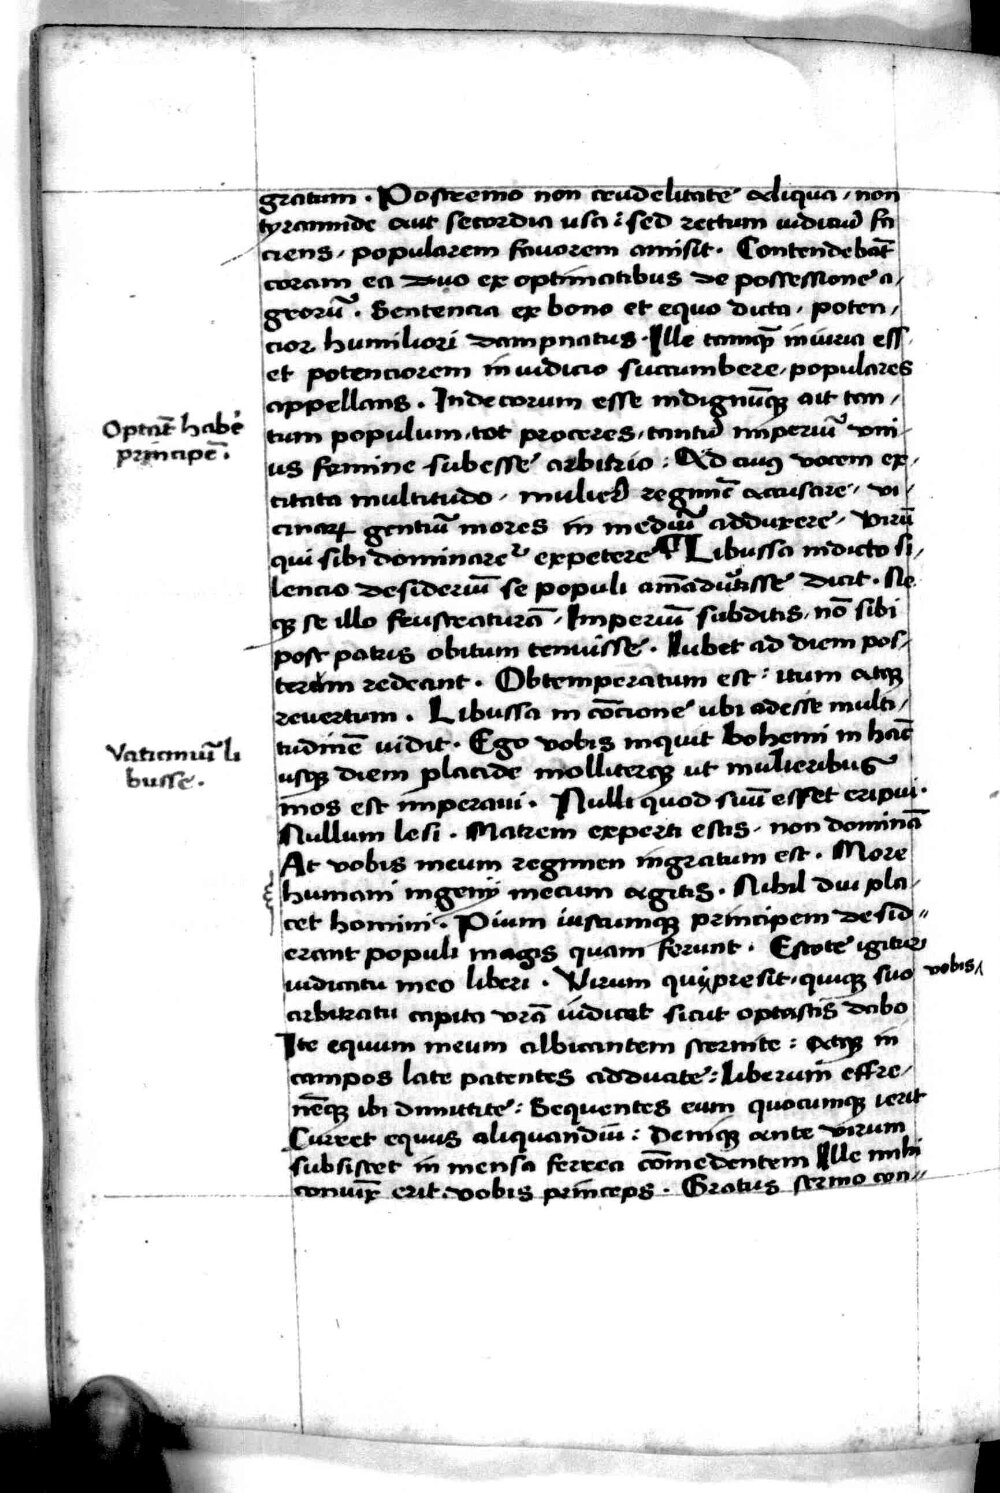 gratum . Postremo non crudelitate aliqua , non
tyrannide aut secordia usa : sed rectum iudiciū fa
ciens , popularem favorem amisit . Contendebāt
coram ea duo ex optimatibus de possessione a,
grorū . Sentencia ex bono et equo dicta , poten,
cior humiliori dampnatus . Ille tamqꝫ iniuria ess,
et potenciorem in iudicio succumbere , populares
appellans . Indecorum esse indignūqꝫ ait tan,
tum populum , tot proceres , tantū imperiū vni,
Optāt habē
principē .
us femine subesse arbitrio : Ad cuiꝰ vocem ex,
citata multitudo , mulieꝝ regimē accusare , vi,
cinaꝝ gentiū mores in mediū adduxere , virū
qui sibi dominareᷣ expetere ¶ Libussa indicto si,
lencio desideriū se populi aīmadūtisse dicit . Ne
qꝫ se illo frustraturā , Imperiū subditis , nō sibi
post patris obitum tenuisse . Iubet ad diem pos,
teram redeant . Obtemperatum est : itum atqꝫ
revertum . Libussa in cōcione ubi adesse multi,
tudinē vidit . Ego vobis inquit bohemi in hāc
Vaticiniū li
busse .
usqꝫ diem placide molliterqꝫ ut mulieribus
mos est imperavi . Nulli quod suū esset eripui .
Nullum lesi . Matrem experti estis , non dominā
At vobis meum regimen ingratum est . More
humani ingenij mecum agitis . Nihil diu pla,
cet homini . Pium iustumqꝫ principem desid=
erant populi magis quam ferunt . Estote igitur
iudicatu meo liberi . Virum qui presit , quiqꝫ suo vobis
arbitratu capita vrā iudicet sicut optastis dabo
Ite equum meum albicantem sternite : atqꝫ in
campos late patentes adducite : liberum effre,
nēqꝫ ibi dimittite : Sequentes eum quocumqꝫ ierit
Curret equus aliquandiu : Deniqꝫ ante virum
subsistet in mensa ferrea cōmedentem Ille mihi
coniux erit vobis princeps . Gratus sermo con=